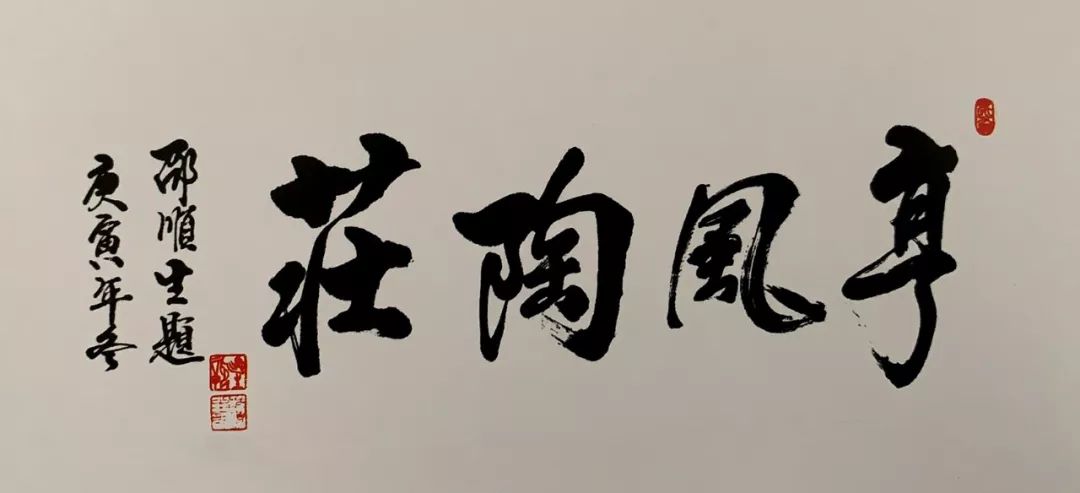 享風陶莊
邵順生題
庚寅年冬